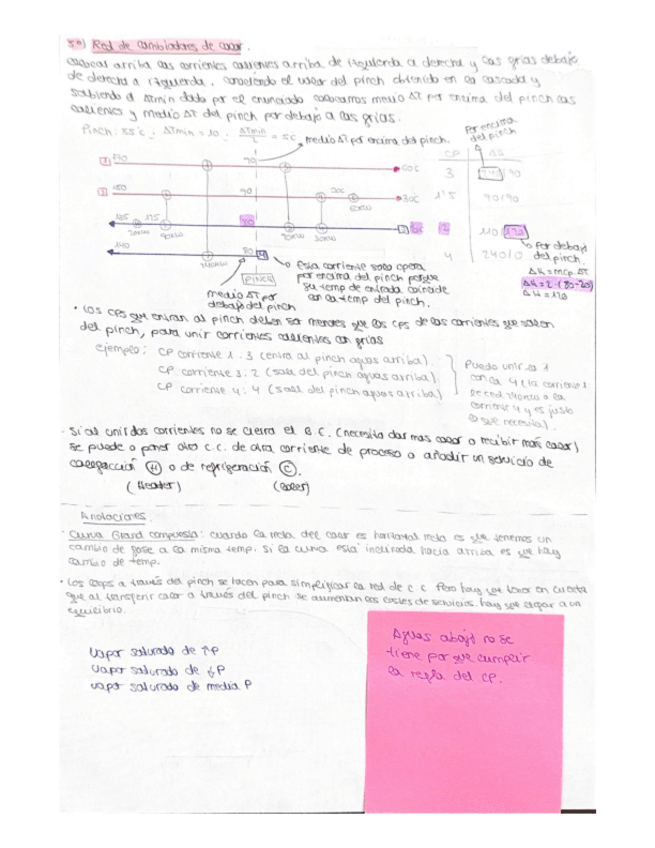 5º) Red de cambiadores de calor.
colocar arriba las corrientes calientes arriba de izquierda a derecha y las frías debajo
de derecha a izquierda. conociendo el valor del pinch obtenido en la cascada y
sabiendo el ΔTmin dado por el enunciado colocamos medio ΔT por encima del pinch las
calientes y medio ΔT del pinch por debajo a las frías.
Pinch: 85ºC ΔTmin = 10 ΔTmin/2 = 5ºC
medio ΔT por encima del pinch.
por encima
del pinch
CP ΔH
1 170 60ºC 3 /90
3 150 90 30ºC 1'5 90/90
125 2 110/120
140 80 4 4 240/0
30KW
90KW
90KW
PINCH
medio ΔT por
debajo del pinch
Esta corriente solo opera
por encima del pinch porque
su temp de entrada coincide
con la temp del pinch.
Por debajo
del pinch.
ΔH = mcp ΔT
ΔH = 2·(80-20)
ΔH = 120
• Los CPs que entran al pinch deben ser menores que los cps de las corrientes que salen
del pinch, para unir corrientes calientes con frías
ejemplo: CP corriente 1: 3 (entra al pinch aguas arriba)
CP corriente 3: 2 (sale del pinch aguas arriba)
CP corriente 4: 4 (sale del pinch aguas arriba)
Puedo unir la 1
con la 4 (la corriente 1
le cede 240KW a la
corriente 4 y es justo
lo que necesita).
- Si al unir dos corrientes no se cierra el B.C. (necesita dar mas calor o recibir más calor)
se puede o poner otro C.C. de otra corriente de proceso o añadir un servicio de
calefacción (H) o de refrigeración (C).
(Heater) (cooler)
Anotaciones.
- Curva Grand compuesta: cuando la recta del calor es horizontal recta es que tenemos un
cambio de fase a la misma temp. Si la curva está inclinada hacia arriba es que hay
cambio de temp.
• Los loops a través del pinch se hacen para simplificar la red de c.c. Pero hay que tener en cuenta
que al transferir calor a través del pinch se aumentan los costes de servicios. hay que llegar a un
equilibrio.
Vapor saturado de ↑P
Vapor saturado de ↓P
vapor saturado de media P
Aguas abajo no se
tiene por que cumplir
la regla del CP.